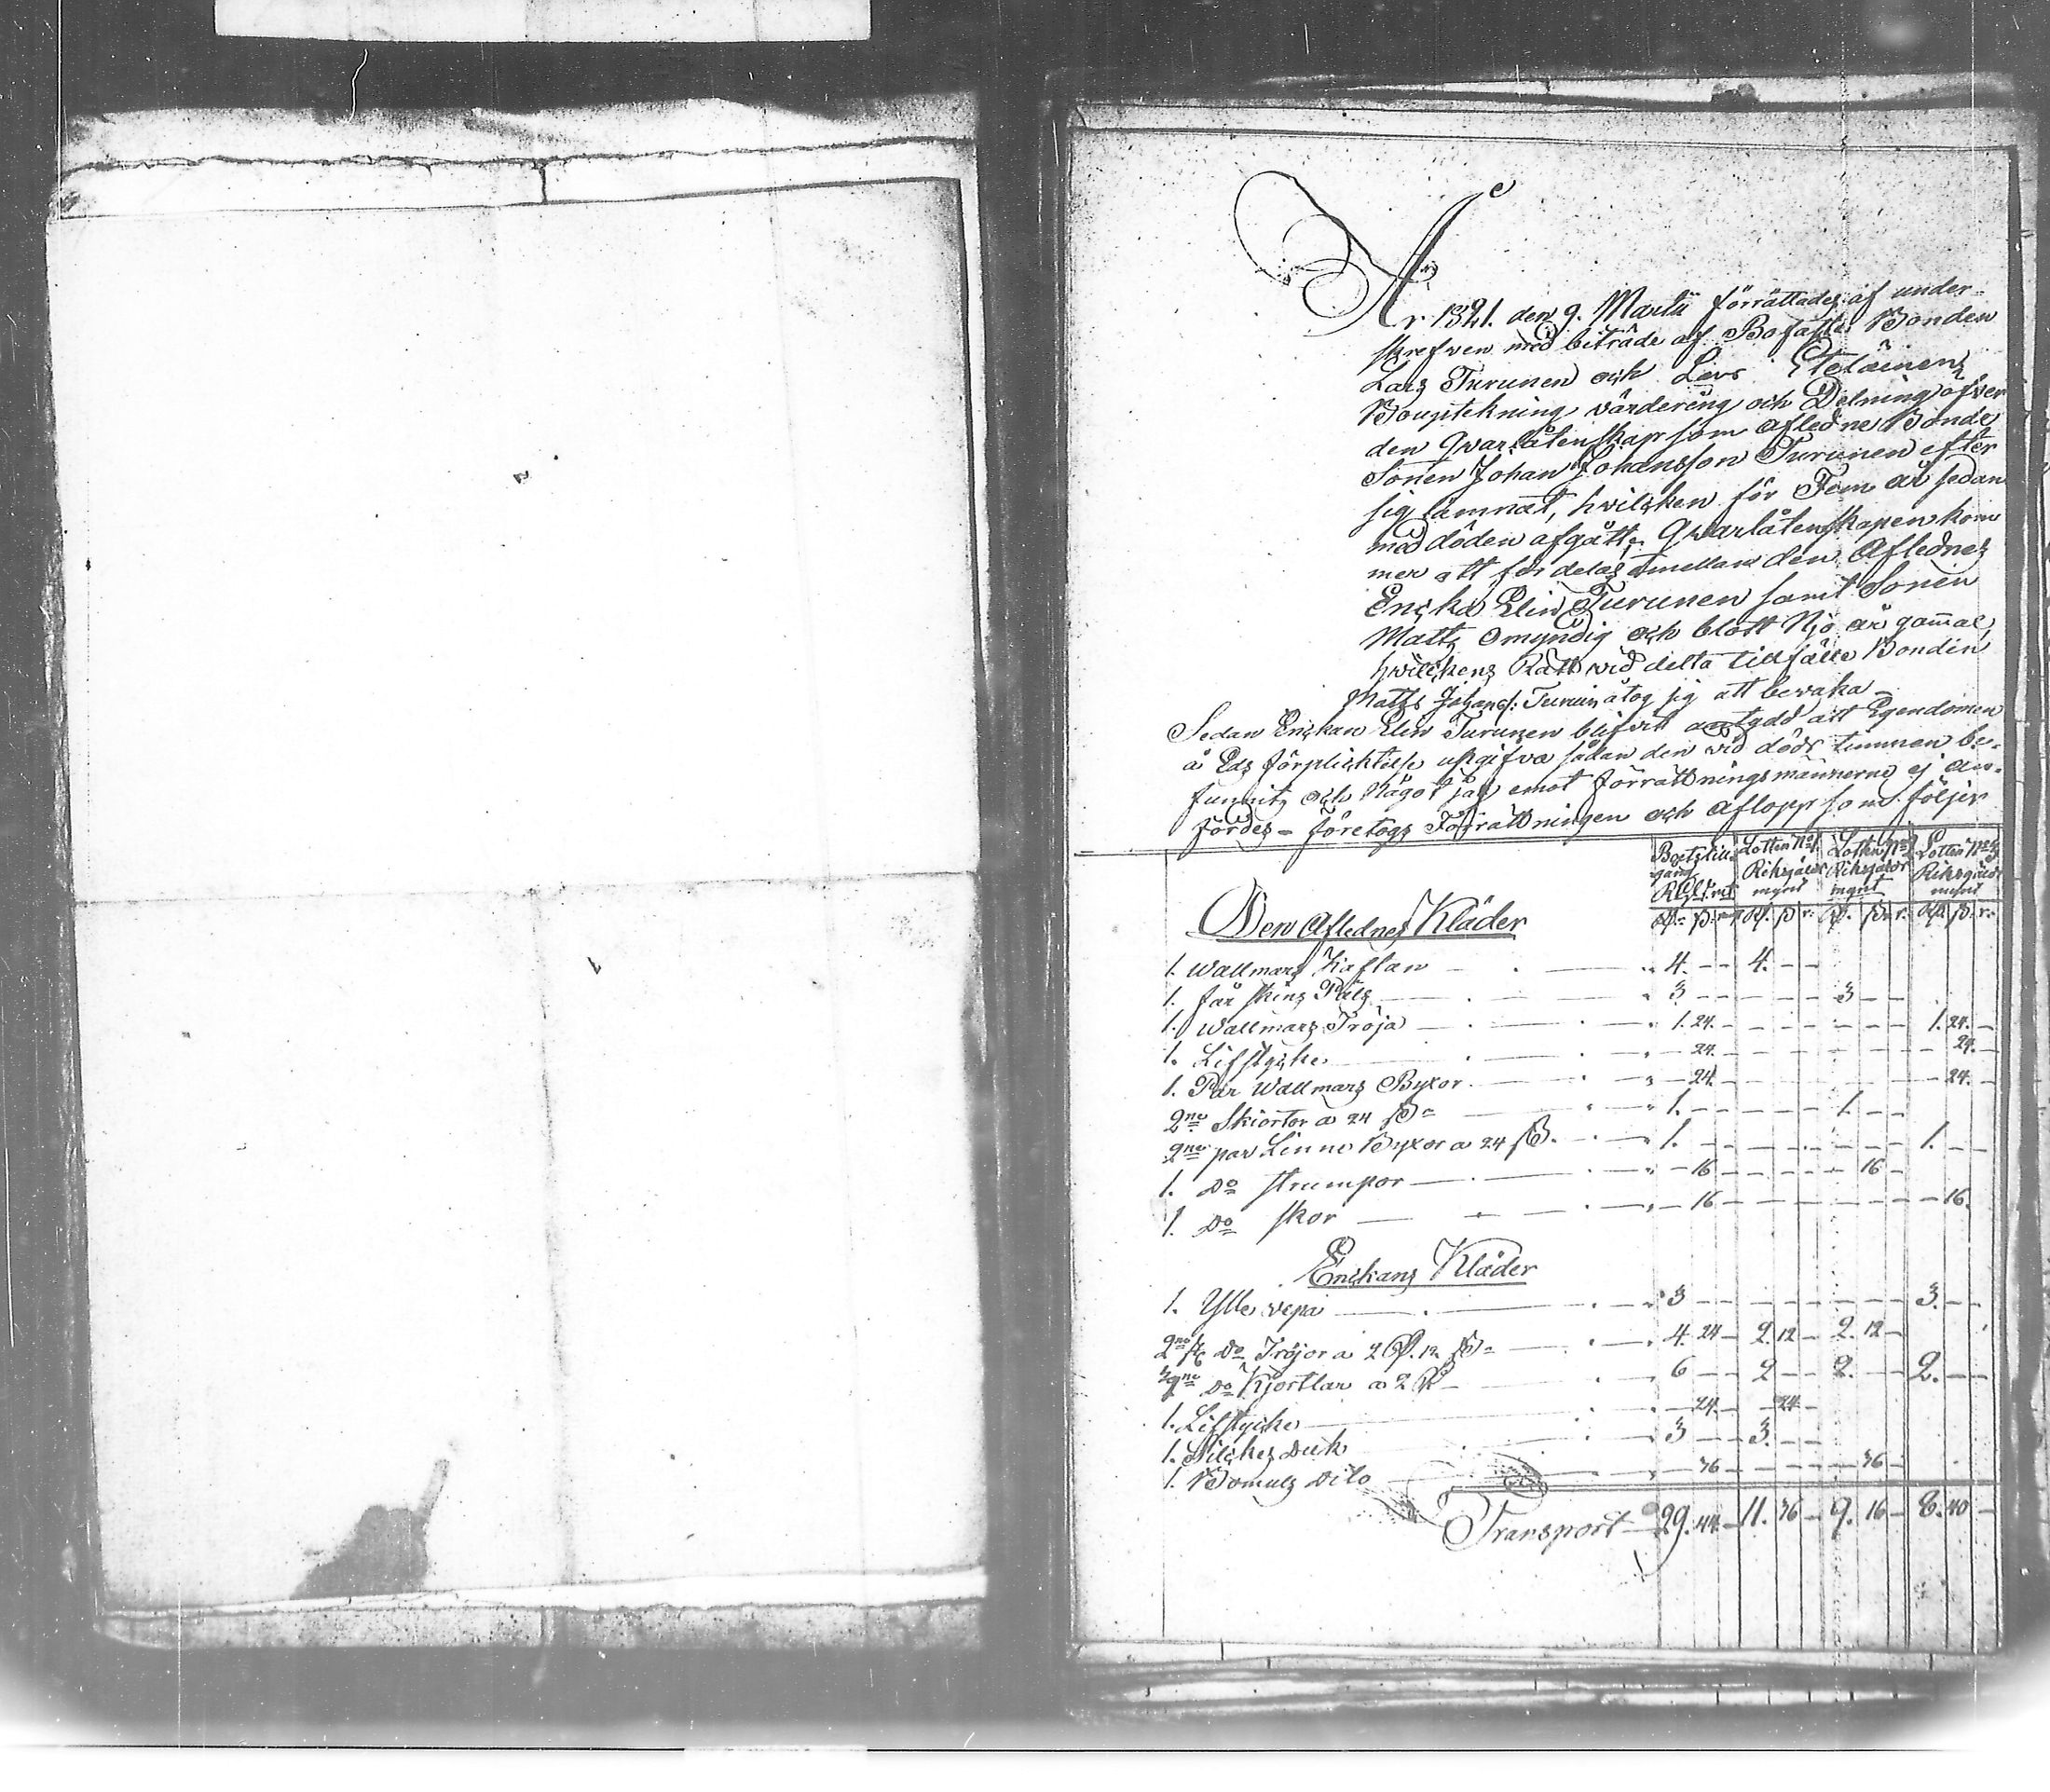 År 1821. den 9. Martii förrättades af under-
skrefven med biträde af Bofaste Bonden
Lars Turunen och Lars Eteläinen
Bouptekning värdering och Delning öfver
den Qvarlåtenskap som afledne Bonde
Sonen Johan Johansson Turunen efter
sig lämnat, hvilcken för Fem år sedan
med döden afgått, Qvarlåtenskapen kom
mer att fördelas emellan den Aflednes
Encka Elin Turunen samt Sonen
Matts omyndig och blott Njo år gam̄al,
hvilckens Rätt wid detta tidfälle Bonden
Matts Johans: Turunen åtog sig att bevaka –
Sedan Enckan Elin Turunen blifvit antydd att Egendomen
å Eds förplicktelse upgifva sådan den vid döds timmen be-
funnits och Något jäf emot förrättningsmännerne ej an-
fördes – företogs Förrättningen och aflopp som följer
Boets till Lotten No 1 Lotten No 2 Lotten No 3
gång Riksgälds Riksgälds Riksgälds
Rgld mt mynt mynt mynt
Rd. ß. r. Rd. ß. r. Rd. ß. r. Rd. ß. r.
Den Aflednes Kläder
1. Wallmars Kaftan — 4. — — 4. — —
1. får skins Päls — 3 — — 3 — —
1. Wallmars Tröja — 1. 24. — 1. 24. —
1. Lifstycke — 24. — 24. —
1. Par Wallmars Byxor — 24. — 24. —
2ne Skiortor a 24 ß — 1. — — 1. — —
2ne par Linne Byxor a 24 ß. — 1. — — 1. — —
1. Do strumpor — 16 — 16 —
1. Do skor — 16 — 16.
Enckans Kläder
1. Ylle vepa — 3 — — 3. — —
2ne st Do Tröjor a 2 Rd. 12 ß — 4. 24 — 2. 12 — 2. 12 —
3ne Do Kjortlar a 2 Rd — 6 — — 2 — — 2. — — 2. — —
1. Lifstycke — 24. — 24. —
1. Silckes Duk — 3 — — 3. — —
1. Bomuls Dito — 36 — 36 —
Transport 29. 44. — 11. 36 — 9. 16 — 8. 40 —